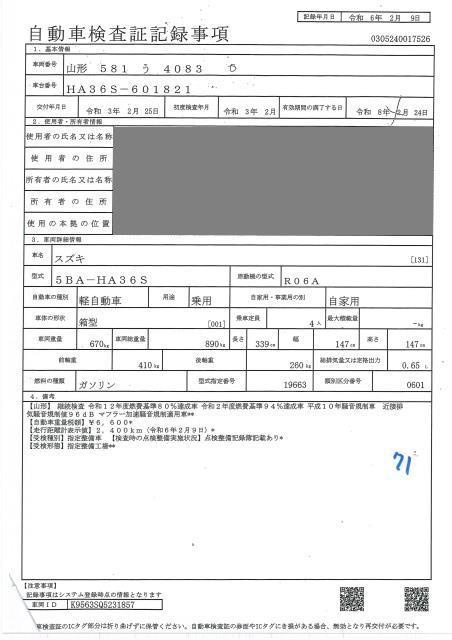 記録年月日 令和 6年 2月 9日
自動車検査証記録事項
0305240017526
1．基本情報
車両番号 山形 581 う 4083
車台番号 HA36S-601821
交付年月日 令和 3年 2月 25日 初度検査年月 令和 3年 2月 有効期間の満了する日 令和 8年 2月 24日
2．使用者・所有者情報
使用者の氏名又は名称
使用者の住所
所有者の氏名又は名称
所有者の住所
使用の本拠の位置
3．車両詳細情報
車名 スズキ [131]
型式 5BA-HA36S 原動機の型式 R06A
自動車の種別 軽自動車 用途 乗用 自家用・事業用の別 自家用
車体の形状 箱型 [001] 乗車定員 4人 最大積載量 -kg
車両重量 670kg 車両総重量 890kg 長さ 339cm 幅 147cm 高さ 147cm
前軸重 410kg 後軸重 260kg 総排気量又は定格出力 0.65 L
燃料の種類 ガソリン 型式指定番号 19663 類別区分番号 0601
4．備考
【山形】 継続検査 令和12年度燃費基準80%達成車 令和2年度燃費基準94%達成車 平成10年騒音規制車 近接排
気騒音規制値96dB マフラー加速騒音規制適用車**
【自動車重量税額】￥6,600*
【走行距離計表示値】2,400km（令和6年2月9日）*
【受検種別】指定整備車 【検査時の点検整備実施状況】点検整備記録簿記載あり*
【受検形態】指定整備工場**
71
【注意事項】
記録事項はシステム登録時点の情報となります
車両ID K9563SQ5231857
車検査証のICタグ部分は折り曲げずに保管ください。自動車検査証の券面やICタグにき損がある場合、無効となり再交付が必要です。